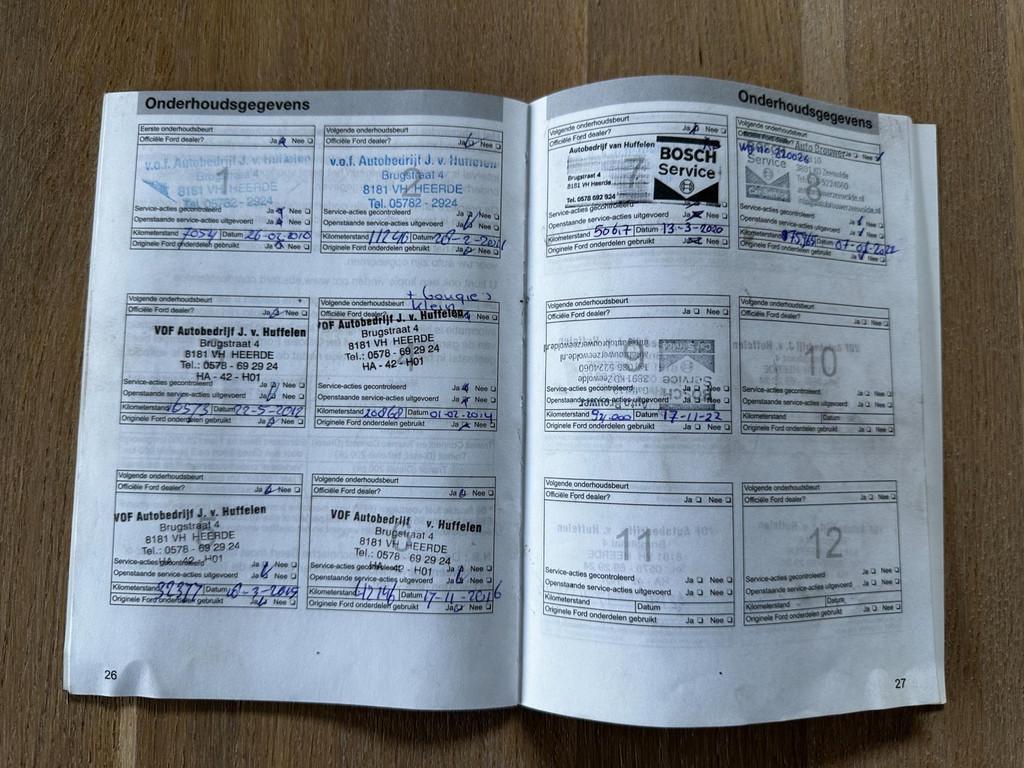 Onderhoudsgegevens
Eerste onderhoudsbeurt
Officiële Ford dealer? Ja Nee
1
v.o.f. Autobedrijf J. v. Huffelen
Brugstraat 4
8181 VH HEERDE
Tel. 05782 - 2924
Service-acties gecontroleerd Ja Nee
Openstaande service-acties uitgevoerd Ja Nee
Kilometerstand 7054 Datum 26-02-2010
Originele Ford onderdelen gebruikt Ja Nee
Volgende onderhoudsbeurt
Officiële Ford dealer? Ja Nee
v.o.f. Autobedrijf J. v. Huffelen
Brugstraat 4
8181 VH HEERDE
Tel. 05782 - 2924
Service-acties gecontroleerd Ja Nee
Openstaande service-acties uitgevoerd Ja Nee
Kilometerstand 11246 Datum
Originele Ford onderdelen gebruikt Ja Nee
Volgende onderhoudsbeurt
Officiële Ford dealer? Ja Nee
VOF Autobedrijf J. v. Huffelen
Brugstraat 4
8181 VH HEERDE
Tel.: 0578 - 69 29 24
HA - 42 - H01
Service-acties gecontroleerd Ja Nee
Openstaande service-acties uitgevoerd Ja Nee
Kilometerstand Datum 22-5-2012
Originele Ford onderdelen gebruikt Ja Nee
+ Bougie's
klein
Volgende onderhoudsbeurt
Officiële Ford dealer? Ja Nee
VOF Autobedrijf J. v. Huffelen
Brugstraat 4
8181 VH HEERDE
Tel.: 0578 - 69 29 24
HA - 42 - H01
Service-acties gecontroleerd Ja Nee
Openstaande service-acties uitgevoerd Ja Nee
Kilometerstand 20868 Datum 01-02-2014
Originele Ford onderdelen gebruikt Ja Nee
Volgende onderhoudsbeurt
Officiële Ford dealer? Ja Nee
VOF Autobedrijf J. v. Huffelen
Brugstraat 4
8181 VH HEERDE
Tel.: 0578 - 69 29 24
HA - 42 - H01
Service-acties gecontroleerd Ja Nee
Openstaande service-acties uitgevoerd Ja Nee
Kilometerstand 32377 Datum
Originele Ford onderdelen gebruikt Ja Nee
Volgende onderhoudsbeurt
Officiële Ford dealer? Ja Nee
VOF Autobedrijf v. Huffelen
Brugstraat 4
8181 VH HEERDE
Tel.: 0578 - 69 29 24
HA - 42 - H01
Service-acties gecontroleerd Ja Nee
Openstaande service-acties uitgevoerd Ja Nee
Kilometerstand 42746 Datum 17-11-2016
Originele Ford onderdelen gebruikt Ja Nee
26
Onderhoudsgegevens
Volgende onderhoudsbeurt
Officiële Ford dealer? Ja Nee
7
Autobedrijf van Huffelen
Brugstraat 4
8181 VH Heerde
Tel. 0578 692 924
BOSCH
Service
Service-acties gecontroleerd Ja Nee
Openstaande service-acties uitgevoerd Ja Nee
Kilometerstand 50617 Datum 13-3-2020
Originele Ford onderdelen gebruikt Ja Nee
Volgende onderhoudsbeurt
Officiële Ford dealer? Ja Nee
Auto Brouwer
8
Service
Service-acties gecontroleerd Ja Nee
Openstaande service-acties uitgevoerd Ja Nee
Kilometerstand Datum
Originele Ford onderdelen gebruikt Ja Nee
Volgende onderhoudsbeurt
Officiële Ford dealer? Ja Nee
9
Auto Brouwer
Service-acties gecontroleerd Ja Nee
Openstaande service-acties uitgevoerd Ja Nee
Kilometerstand Datum 17-11-22
Originele Ford onderdelen gebruikt Ja Nee
Volgende onderhoudsbeurt
Officiële Ford dealer? Ja Nee
10
Service-acties gecontroleerd Ja Nee
Openstaande service-acties uitgevoerd Ja Nee
Kilometerstand Datum
Originele Ford onderdelen gebruikt Ja Nee
Volgende onderhoudsbeurt
Officiële Ford dealer? Ja Nee
11
Service-acties gecontroleerd Ja Nee
Openstaande service-acties uitgevoerd Ja Nee
Kilometerstand Datum
Originele Ford onderdelen gebruikt Ja Nee
Volgende onderhoudsbeurt
Officiële Ford dealer? Ja Nee
12
Service-acties gecontroleerd Ja Nee
Openstaande service-acties uitgevoerd Ja Nee
Kilometerstand Datum
Originele Ford onderdelen gebruikt Ja Nee
27